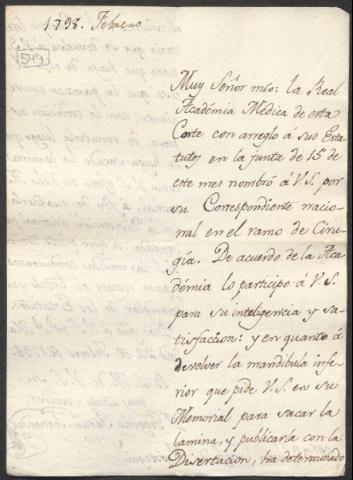 1798. Febrero
519
Muy Señor mio: La Real
Académia Medica de esta
Corte con arreglo á sus Esta-
tutos en la junta de 15 de
este mes nombró á V.S. por
su Correspondiente nacio-
nal en el ramo de Ciru-
gía. De acuerdo de la Aca-
démia lo participo á V.S.
para su inteligencia y sa-
tisfaccion: y en quanto á
devolver la mandibula infe-
rior que pide V.S. en su
Memorial para sacar la
lamina, y publicarla con la
Disertacion, ha determinado